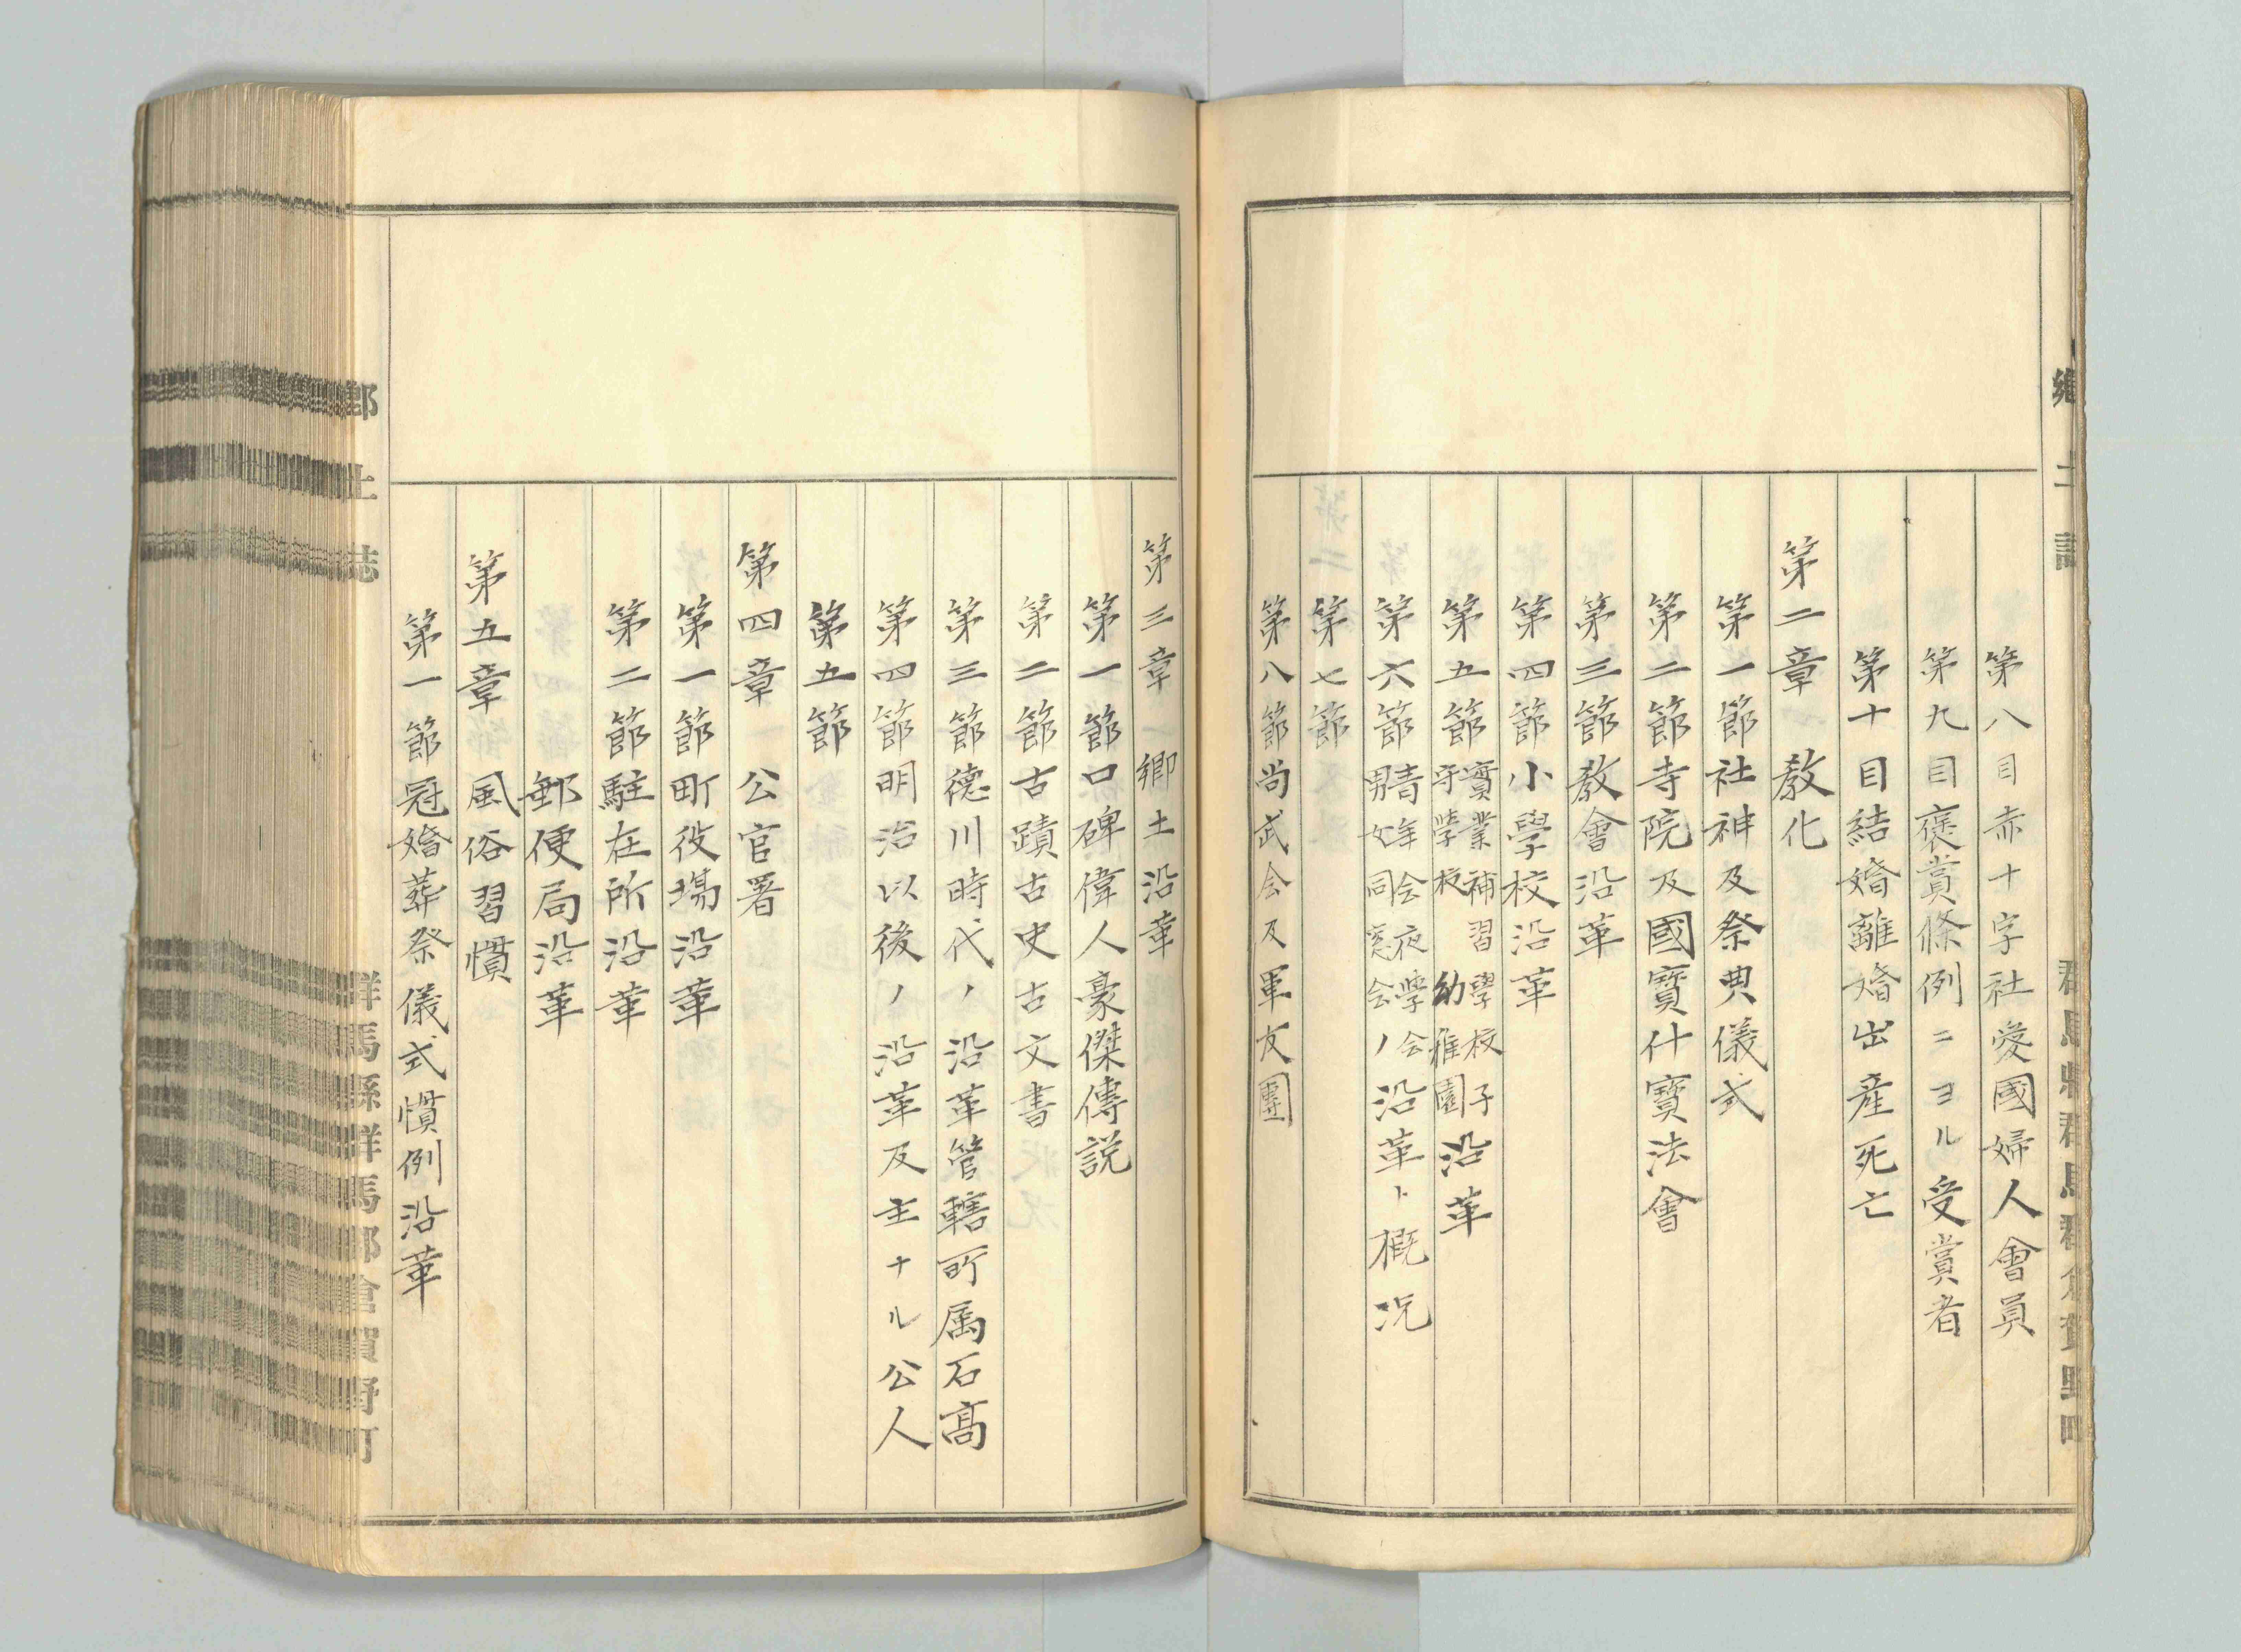 鄉土誌
群馬縣群馬郡倉賀野町
第八目赤十字社愛國婦人會員
第九目褒賞條例ニヨル受賞者
第十目結婚離婚出産死亡
第二章 教化
第一節社神及祭典儀式
第二節寺院及國寶什寶法會
第三節教會沿革
第四節小學校沿革
第五節實業補習學校子守學校幼稚園沿革
第六節青年会夜學会男女同窓会ノ沿革ト概況
第七節
第八節尚武会及軍友團
第三章 鄉土沿革
第一節口碑偉人豪傑傳説
第二節古蹟古史古文書
第三節德川時代ノ沿革管轄所属石高
第四節明治以後ノ沿革及主ナル公人
第五節
第四章 公官署
第一節町役場沿革
第二節駐在所沿革
郵便局沿革
第五章 風俗習慣
第一節冠婚葬祭儀式慣例沿革
鄉土誌
群馬縣群馬郡倉賀野町